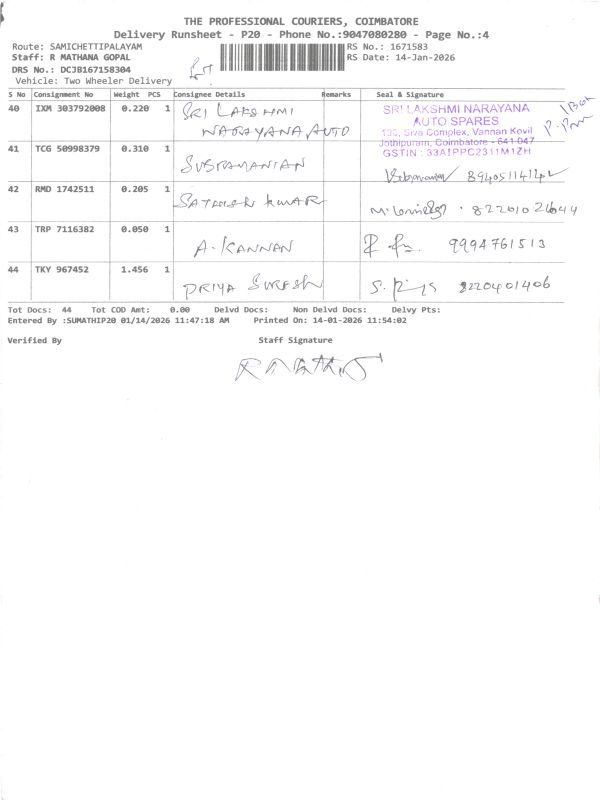 THE PROFESSIONAL COURIERS, COIMBATORE
Delivery Runsheet - P20 - Phone No.:9047080280 - Page No.:4
Route: SAMICHETTIPALAYAM RS No.: 1671583
Staff: R MATHANA GOPAL RS Date: 14-Jan-2026
DRS No.: DCJB167158304
Vehicle: Two Wheeler Delivery
S No Consignment No Weight PCS Consignee Details Remarks Seal & Signature
40 IXM 303792008 0.220 1 SRI LAKSHMI
NARAYANA AUTO
SRI LAKSHMI NARAYANA
AUTO SPARES
Siva Complex, Vannan Kovil
Jothipuram, Coimbatore - 641 047
GSTIN : 33AIPPC2311M1ZH
41 TCG 50998379 0.310 1 SUBRAMANIAN
42 RMD 1742511 0.205 1 SATHISH KUMAR
43 TRP 7116382 0.050 1 A. KANNAN 9994761513
44 TKY 967452 1.456 1 PRIYA SURESH 8220401406
Tot Docs: 44 Tot COD Amt: 0.00 Delvd Docs: Non Delvd Docs: Delvy Pts:
Entered By :SUMATHIP20 01/14/2026 11:47:18 AM Printed On: 14-01-2026 11:54:02
Verified By Staff Signature